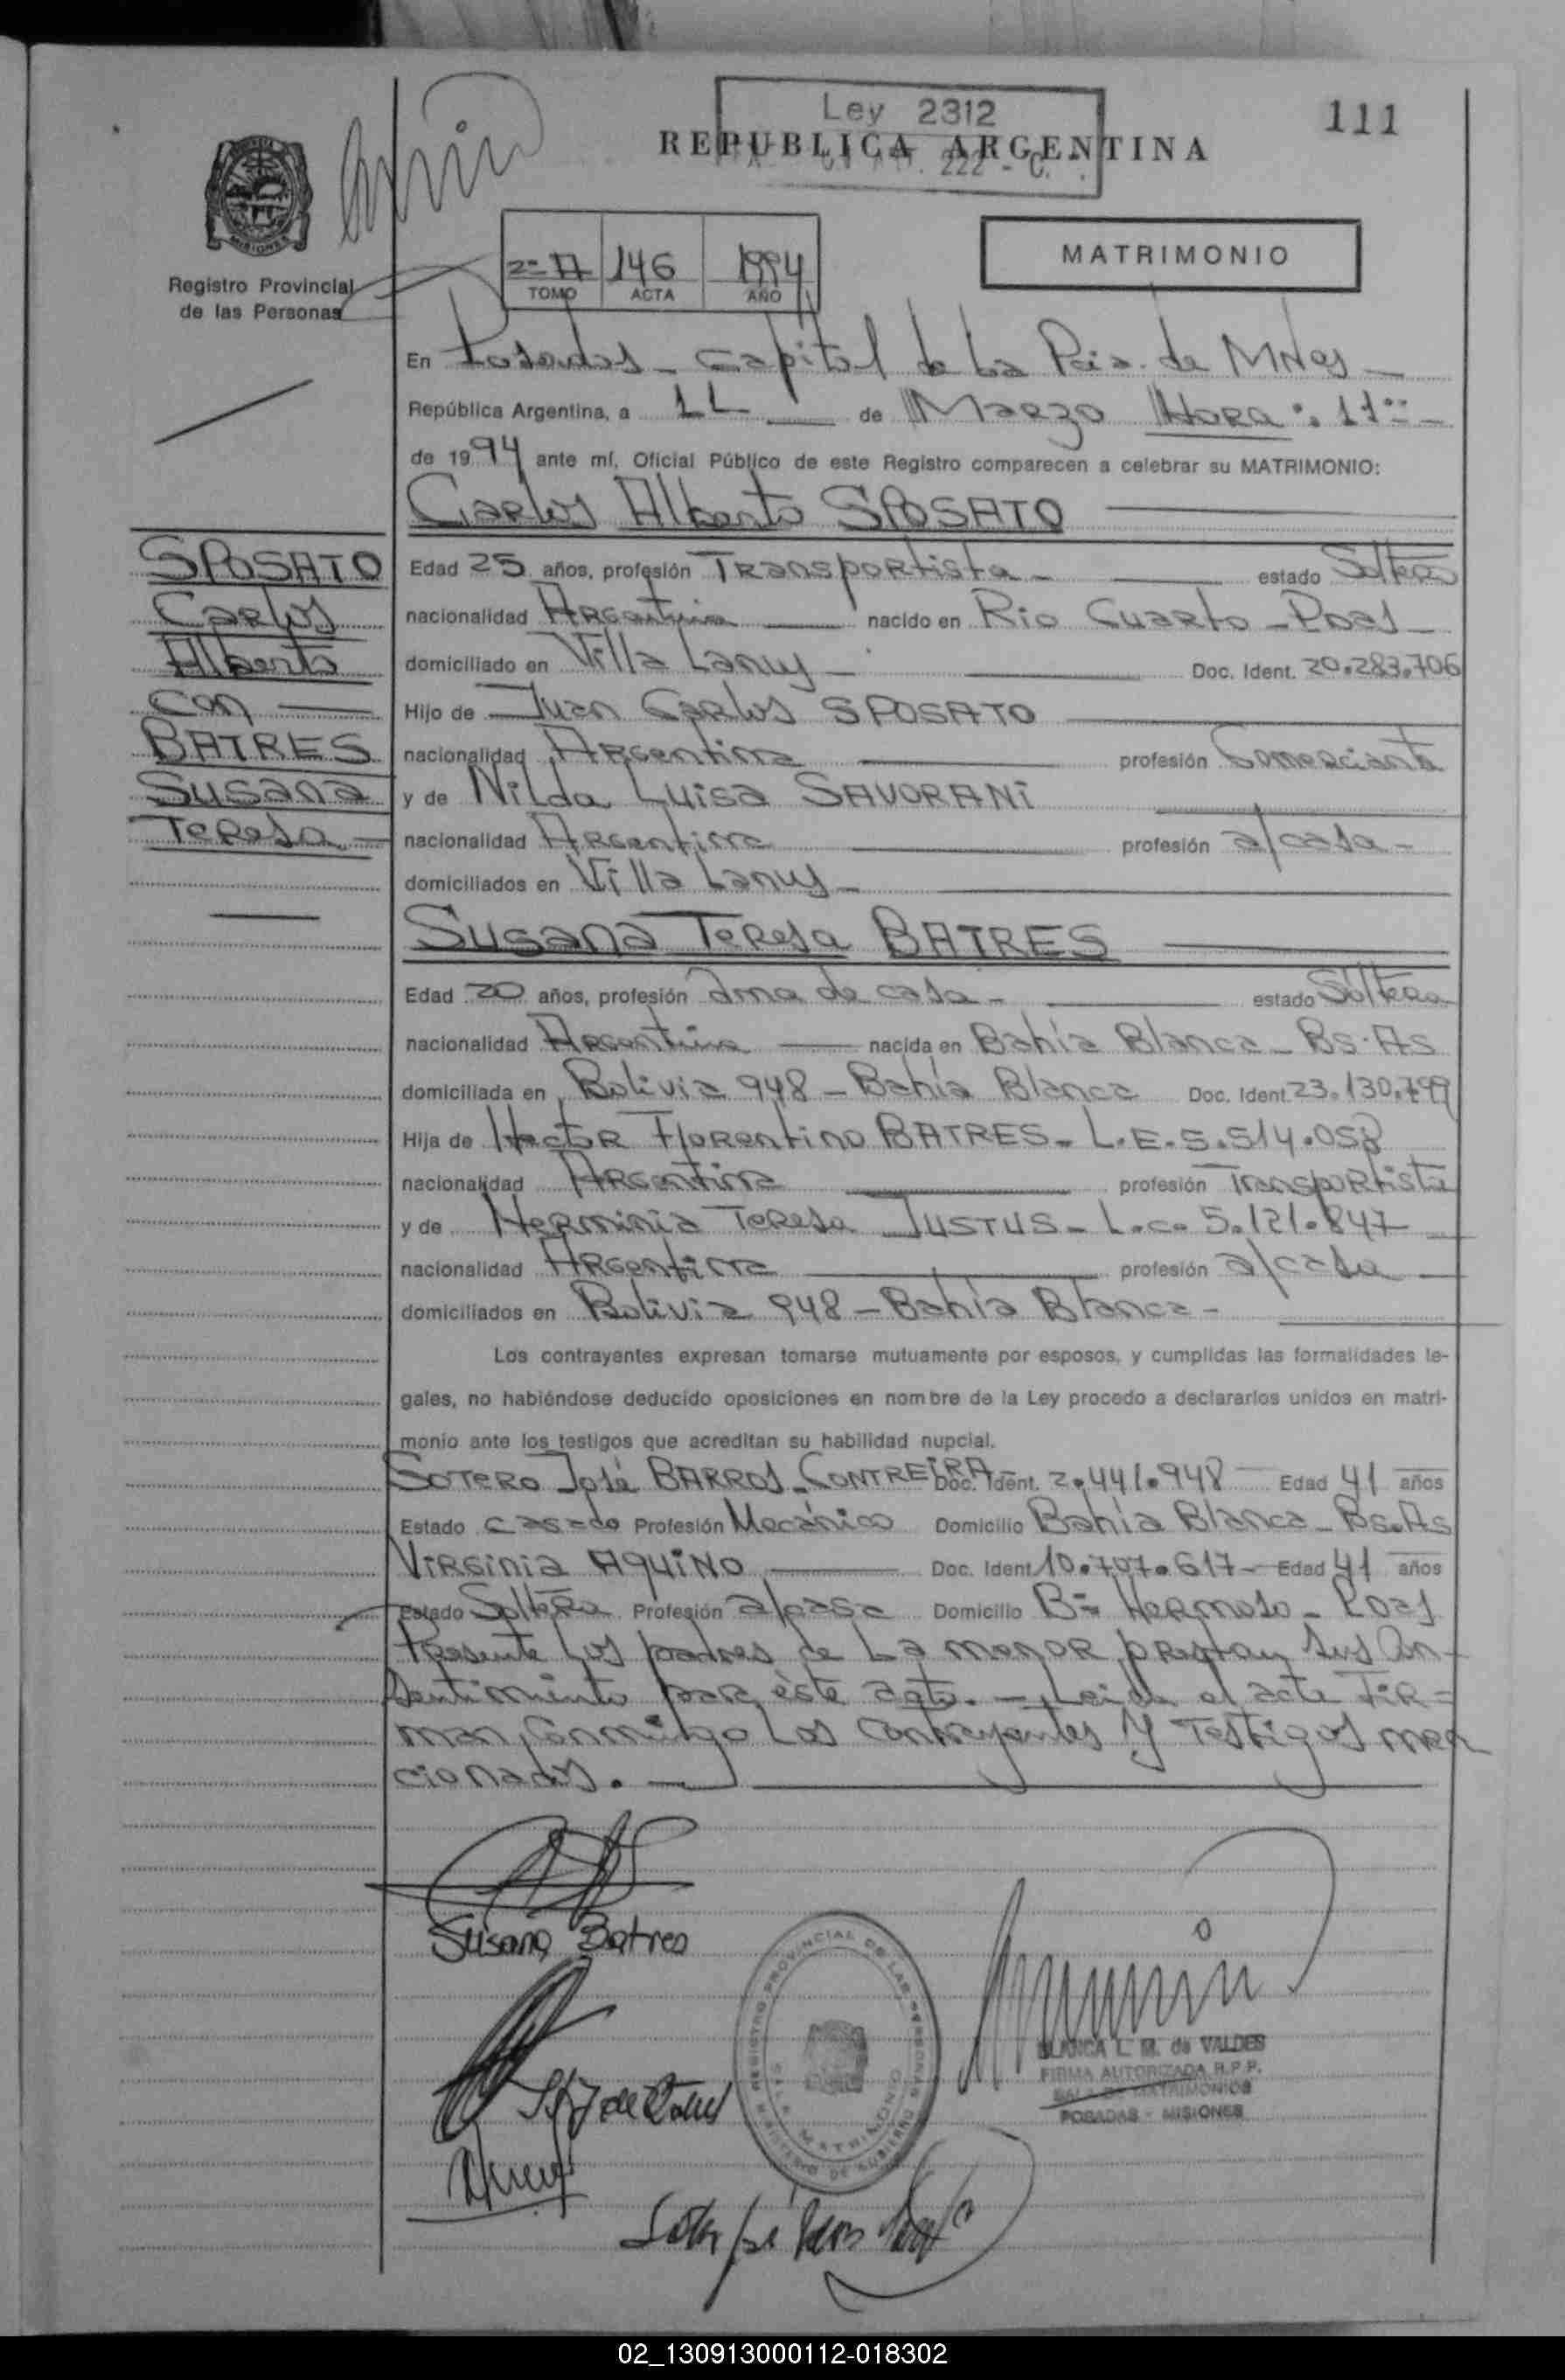 111
Ley 2312
REPUBLICA ARGENTINA
222 - C.
MISIONES
Registro Provincial
de las Personas
146 1994
TOMO ACTA AÑO
MATRIMONIO
En Posadas - Capital de La Pcia. de MNes -
República Argentina, a 11 de Marzo HORA: 11
de 1994 ante mí, Oficial Público de este Registro comparecen a celebrar su MATRIMONIO:
Carlos Alberto SPOSATO
SPOSATO
Carlos
Alberto
con
BATRES
Susana
Teresa
Edad 25 años, profesión Transportista - estado Soltero
nacionalidad Argentina nacido en Rio Cuarto - Pdas -
domiciliado en Villa Lanus - Doc. Ident. 20.283.706
Hijo de Juan Carlos SPOSATO
nacionalidad Argentina profesión Comerciante
y de Nilda Luisa SAVORANi
nacionalidad Argentina profesión a/casa -
domiciliados en Villa Lanus -
Susana Teresa BATRES
Edad 20 años, profesión Ama de casa - estado Soltera
nacionalidad Argentina nacida en Bahía Blanca - Bs.As
domiciliada en Bolivia 948 - Bahía Blanca Doc. Ident 23.130.799
Hija de Hector Florentino BATRES - L.E. 5.514.058
nacionalidad Argentina profesión Transportista
y de Herminia Teresa JUSTUS - L.C. 5.121.847
nacionalidad Argentina profesión a/casa
domiciliados en Bolivia 948 - Bahía Blanca -
Los contrayentes expresan tomarse mutuamente por esposos, y cumplidas las formalidades le-
gales, no habiéndose deducido oposiciones en nombre de la Ley procedo a declararlos unidos en matri-
monio ante los testigos que acreditan su habilidad nupcial.
SOTERO José BARROS - CONTREIRA - Doc. Ident. 2.441.948 Edad 41 años
Estado casado Profesión Mecánico Domicilio Bahía Blanca - Bs.As
Virginia AQUINO Doc. Ident 10.707.617 - Edad 41 años
Estado Soltera Profesión a/casa Domicilio Bº Hermoso - Pdas
Presente Los padres de La menor prestan sus con-
sentimiento para éste acto. - Leida el acta Fir=
man conmigo Los contrayentes y Testigos men
cionados. -
Susana Batres
REGISTRO PROVINCIAL DE LAS PERSONAS
MINISTERIO DE GOBIERNO
SALA MATRIMONIO
BLANCA L. M. de VALDES
FIRMA AUTORIZADA R.P.P.
SALA DE MATRIMONIOS
POSADAS - MISIONES
02_130913000112-018302